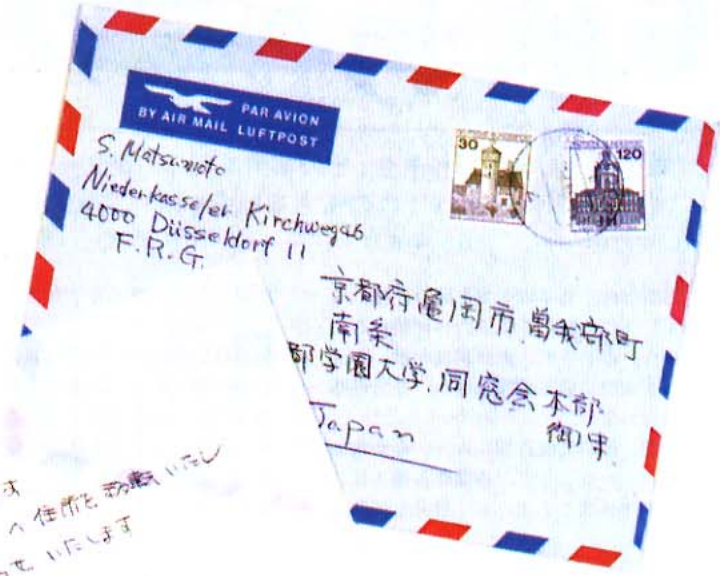 PAR AVION
BY AIR MAIL LUFTPOST
30
120
S. Matsumoto
Niederkasseler Kirchweg 46
4000 Düsseldorf 11
F.R.G.
京都府亀岡市曽我部町
南条
都学園大学,同窓会本部
御中
Japan
す
へ住所を移転いたし
せいたします